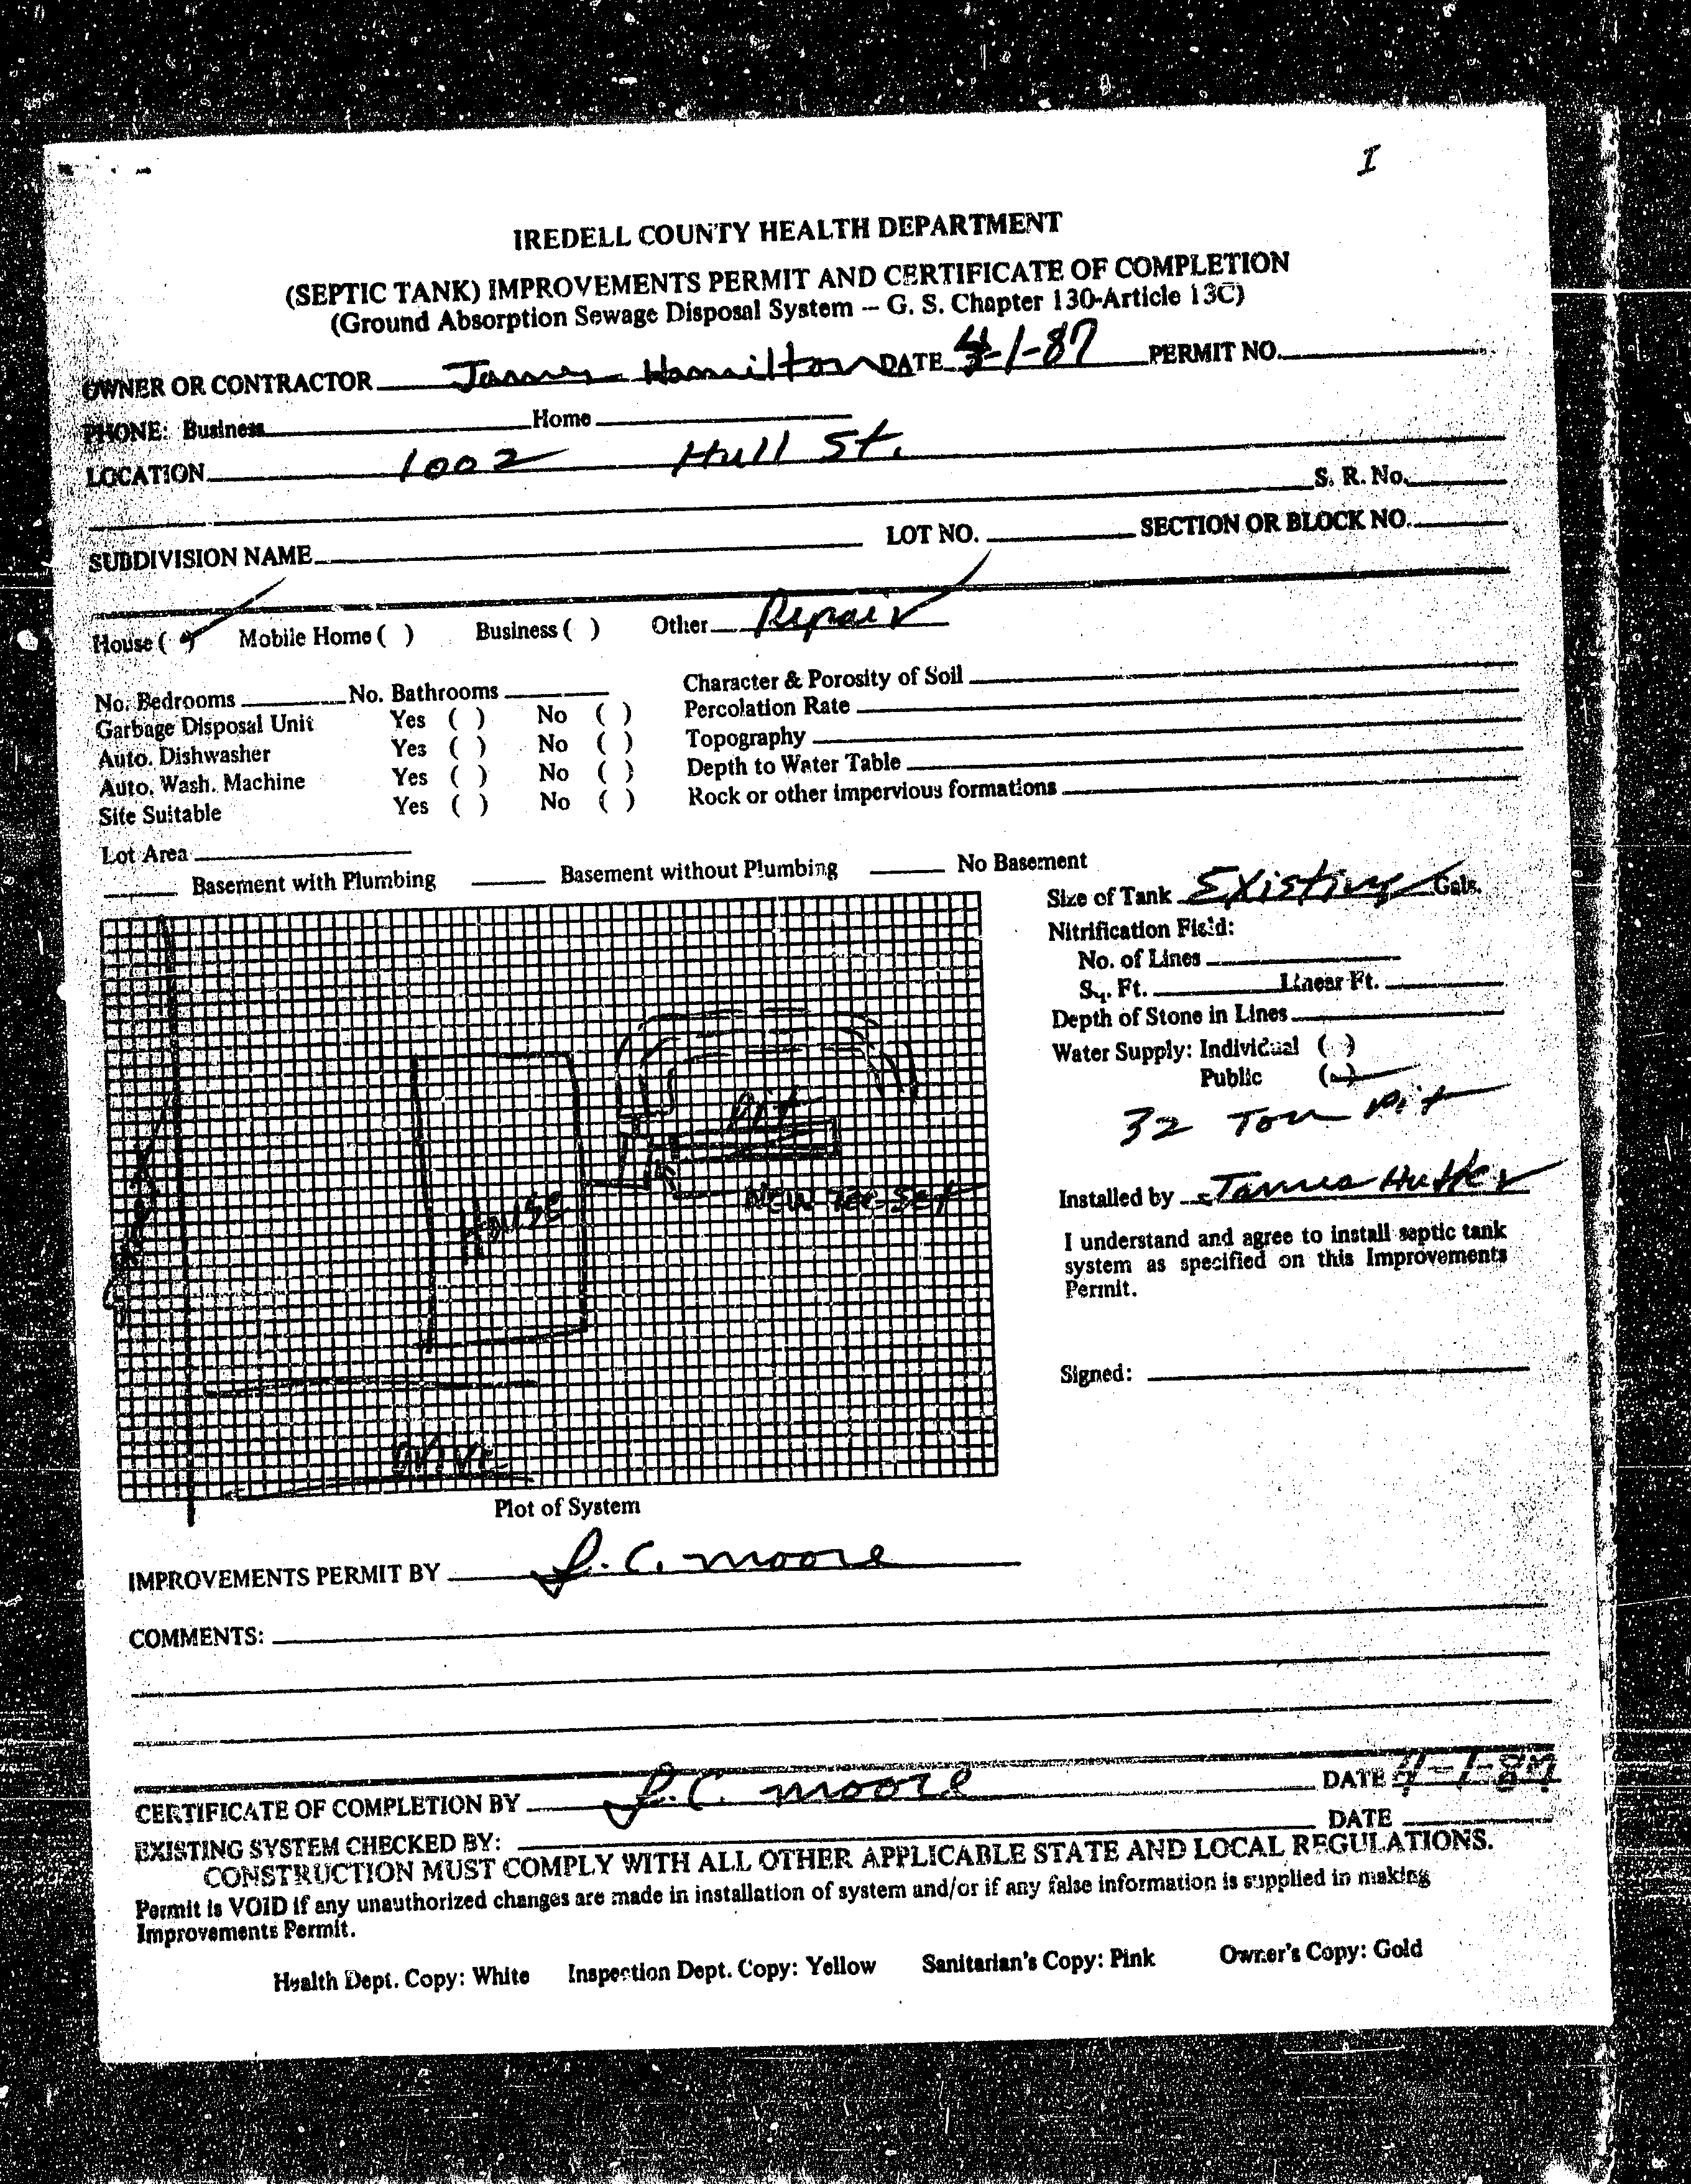 I
IREDELL COUNTY HEALTH DEPARTMENT
(SEPTIC TANK) IMPROVEMENTS PERMIT AND CERTIFICATE OF COMPLETION
(Ground Absorption Sewage Disposal System -- G. S. Chapter 130-Article 13C)
OWNER OR CONTRACTOR James Hamilton DATE 4-1-87 PERMIT NO.
PHONE: Business Home
LOCATION 1002 Hull St.
S. R. No.
SUBDIVISION NAME LOT NO. SECTION OR BLOCK NO.
House ( ✓ ) Mobile Home ( ) Business ( ) Other Repair
No. Bedrooms No. Bathrooms Character & Porosity of Soil
Garbage Disposal Unit Yes ( ) No ( ) Percolation Rate
Auto. Dishwasher Yes ( ) No ( ) Topography
Auto. Wash. Machine Yes ( ) No ( ) Depth to Water Table
Site Suitable Yes ( ) No ( ) Rock or other impervious formations
Lot Area
Basement with Plumbing Basement without Plumbing No Basement
Size of Tank Existing Gals.
Nitrification Field:
No. of Lines
Sq. Ft. Linear Ft.
Depth of Stone in Lines
Water Supply: Individual ( )
Public ( ✓ )
32 Ton Pit
Pit
New Tee Set
House
Drive
Installed by James
I understand and agree to install septic tank
system as specified on this Improvements
Permit.
Signed:
Plot of System
IMPROVEMENTS PERMIT BY L. C. Moore
COMMENTS:
CERTIFICATE OF COMPLETION BY L. C. Moore DATE 4-1-87
EXISTING SYSTEM CHECKED BY: DATE
CONSTRUCTION MUST COMPLY WITH ALL OTHER APPLICABLE STATE AND LOCAL REGULATIONS.
Permit is VOID if any unauthorized changes are made in installation of system and/or if any false information is supplied in making
Improvements Permit.
Health Dept. Copy: White Inspection Dept. Copy: Yellow Sanitarian's Copy: Pink Owner's Copy: Gold